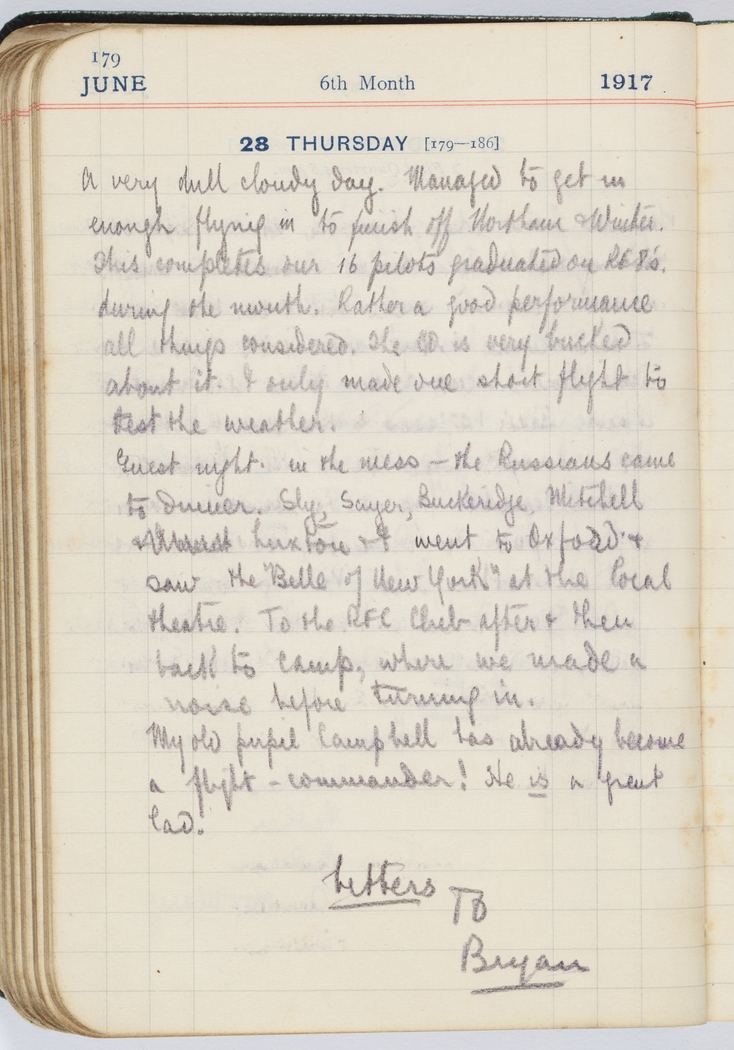 179
JUNE 6th Month 1917
28 THURSDAY [179—186]
A very dull cloudy day. Managed to get in
enough flying in to finish off Northam & Winter.
This completes our 16 pilots graduated on RE8's.
during the month. Rather a good performance
all things considered. The CO is very bucked
about it. I only made one short flight to
test the weather.
Guest night in the mess — the Russians came
to dinner. Sly, Sayer, Buckeridge, Mitchell
& Luxton & I went to Oxford &
saw the "Belle of New York" at the local
theatre. To the RFC Club after & then
back to camp, where we made a
noise before turning in.
My old pupil Campbell has already become
a flight-commander! He is a great
lad.
Letters
To
Bryan